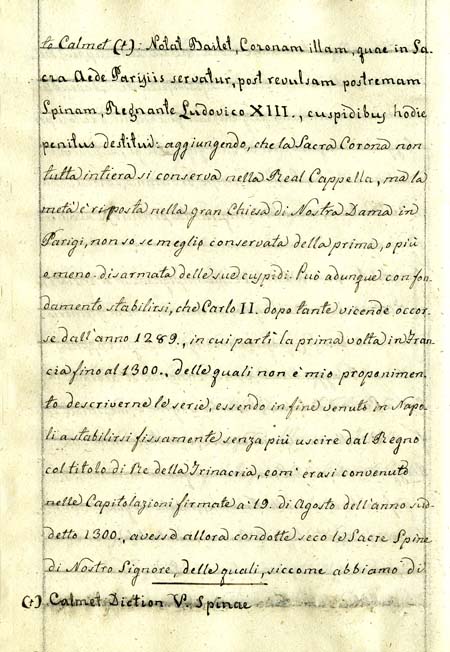 to Calmet (t): Notat Bailet, Coronam illam, quae in Sa,
cra Aede Parisiis servatur, post revulsam postremam
Spinam, Regnante Ludovico XIII., cuspidibus hodie
penitus destitui: aggiungendo, che la Sacra Corona non
tutta intiera si conserva nella Real Cappella, ma la
metà è riposta nella gran Chiesa di Nostra Dama in
Parigi, non so se meglio conservata della prima, o più
o meno disarmata delle sue cuspidi. Può adunque con fon,
damento stabilirsi, che Carlo II. dopo tante vicende occor,
se dall'anno 1289., in cui partì la prima volta in Fran,
cia fino al 1300., delle quali non è mio proponimen,
to descriverne le serie, essendo in fine venuto in Napo,
li a stabilirsi fissamente senza più uscire dal Regno
col titolo di Re della Trinacria, com'erasi convenuto
nelle Capitolazioni firmate a' 19. di Agosto dell'anno sud,
detto 1300., avesse allora condotte seco le Sacre Spine
di Nostro Signore, delle quali, siccome abbiamo di
(t) Calmet Diction V. Spinae